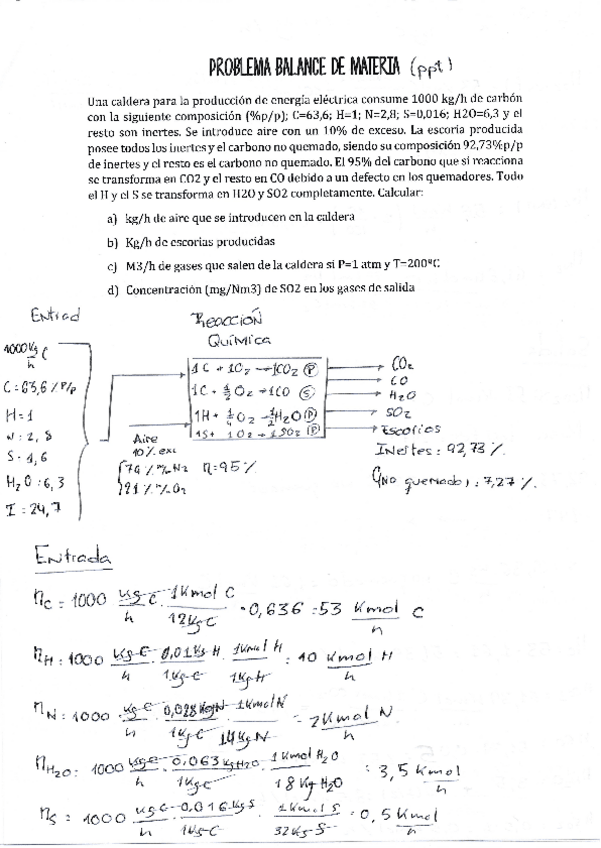 PROBLEMA BALANCE DE MATERIA (ppt)
Una caldera para la producción de energía eléctrica consume 1000 kg/h de carbón
con la siguiente composición (%p/p); C=63,6; H=1; N=2,8; S=0,016; H2O=6,3 y el
resto son inertes. Se introduce aire con un 10% de exceso. La escoria producida
posee todos los inertes y el carbono no quemado, siendo su composición 92,73%p/p
de inertes y el resto es el carbono no quemado. El 95% del carbono que si reacciona
se transforma en CO2 y el resto en CO debido a un defecto en los quemadores. Todo
el H y el S se transforma en H2O y SO2 completamente. Calcular:
a) kg/h de aire que se introducen en la caldera
b) Kg/h de escorias producidas
c) M3/h de gases que salen de la caldera si P=1 atm y T=200ºC
d) Concentración (mg/Nm3) de SO2 en los gases de salida
Entrad
Reacción
Química
1000 Kg/h C
C = 63,6 % P/p
H = 1
N = 2,8
S = 1,6
H2O = 6,3
I = 24,7
1C + 1O2 → 1CO2 (P)
1C + 1/2 O2 → 1CO (S)
1H + 1/4 O2 → 1/2 H2O (P)
1S + 1O2 → 1SO2 (P)
CO2
CO
H2O
SO2
Escorios
Inertes: 92,73 %
C(No quemado): 7,27 %
Aire
10 % exc
79 % N2
21 % O2
η = 95 %
Entrada
nC = 1000 Kg C/h · 1Kmol C/12Kg C · 0,636 = 53 Kmol/h C
nH = 1000 Kg C/h · 0,01 Kg H/1Kg C · 1Kmol H/1Kg H = 10 Kmol H/h
nN = 1000 Kg C/h · 0,028 Kg N/1Kg C · 1Kmol N/14Kg N = 2 Kmol N/h
nH2O = 1000 Kg C/h · 0,063 Kg H2O/1Kg C · 1Kmol H2O/18 Kg H2O = 3,5 Kmol/h
nS = 1000 Kg C/h · 0,016 Kg S/1Kg C · 1Kmol S/32Kg S = 0,5 Kmol/h